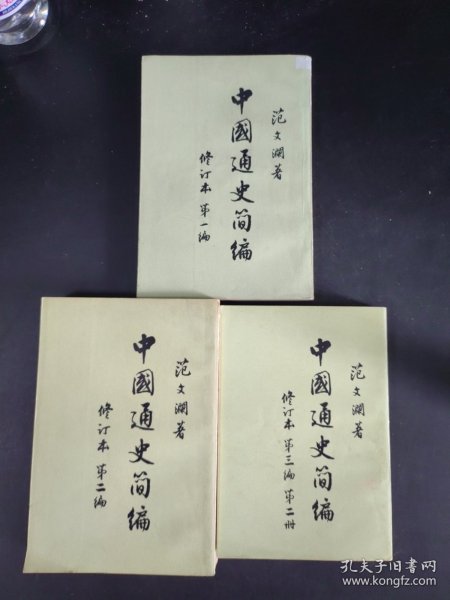 范文瀾著
中國通史简编
修订本 第一编
范文瀾著
中國通史简编
修订本 第二编
范文瀾著
中國通史简编
修订本 第三编 第二册
孔夫子旧书网
www.kongfz.com